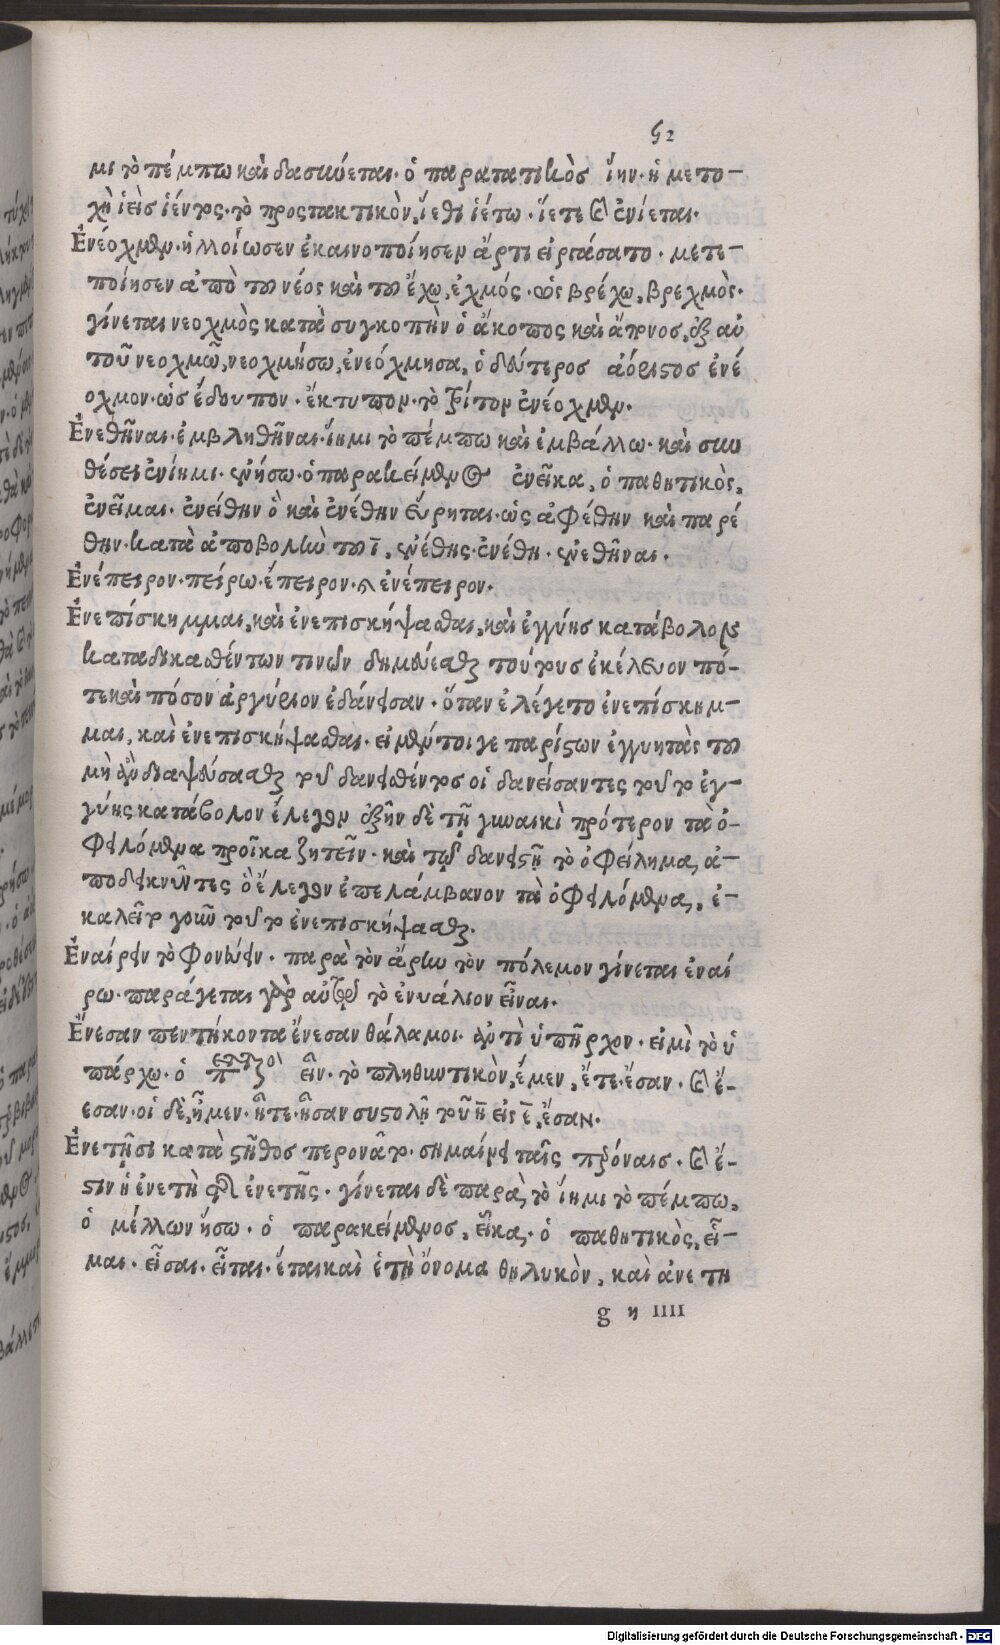 52
μι τὸ πέμπω καὶ δασύνεται· ὁ παρατατικὸς ἵην· ἡ μετο-
χὴ ἱεὶς ἱέντος· τὸ προστακτικὸν, ἵεθι ἱέτω· ἵετε καὶ ἐνίεται·
Ἐνέοχμον· ἠλλοίωσεν ἐκαινοποίησεν ἄρτι εἰργάσατο· μετε-
ποίησεν ἀπὸ τοῦ νέος καὶ τοῦ ἔχω, ἐχμός· ὡς βρέχω, βρεχμὸς·
γίνεται νεοχμὸς κατὰ συγκοπὴν ὁ ἄκοπος καὶ ἄπνοσ, ἐξ αὐ
τοῦ νεοχμῶ, νεοχμήσω, ἐνεόχμησα, ὁ δεύτερος ἀόριστος ἐνέ
οχμον· ὡς ἔδουπον· ἔκτυπον· τὸ τρίτον ἐνέοχμον·
Ἐνεθῆναι· ἐμβληθῆναι· ἵημι τὸ πέμπω καὶ ἐμβάλλω· καὶ συν
θέσει ἐνίημι· ἐνήσω· ὁ παρακείμενος ἐνεῖκα, ὁ παθητικὸς,
ἐνεῖμαι· ἐνείθην ὃ καὶ ἐνέθην εὕρηται· ὡς ἀφέθην καὶ παρέ
θην· κατὰ ἀποβολὴν τοῦ ῑ, ἐνέθης· ἐνέθη· ἐνεθῆναι·
Ἐνέπειρον· πείρω· ἔπειρον· καὶ ἐνέπειρον·
Ἐνεπίσκημμαι, καὶ ἐνεπισκήψασθαι, καὶ ἐγγύης κατάβολος
καταδικασθέντων τινῶν δημεύεσθαι τούτους ἐκέλευον πό-
τε καὶ πόσον ἀργύριον ἐδάνεισαν· ὅταν ἐλέγετο ἐνεπίσκημ-
μαι, καὶ ἐνεπισκήψασθαι· εἰ μέντοι γε παρίστων ἐγγυητὰς τοῦ
μὴ ἂν διαψεύσασθαι τοῦ δανεισθέντος οἱ δανείσαντες τοῦτο ἐγ-
γύης κατάβολον ἔλεγον ἐξῆν δὲ τῇ γυναικὶ πρότερον τὰ ὀ-
φειλόμενα προῖκα ζητεῖν· καὶ τῷ δανειστῇ τὸ ὀφείλημα, ἀ-
ποδεικνύντες ὃ ἔλεγον ἐπελάμβανον τὰ ὀφειλόμενα, ἐ-
καλεῖτο γοῦν τοῦτο ἐνεπισκήψασθαι.
Ἐναίρειν τὸ φονεύειν· παρὰ τὸν ἄρην τὸν πόλεμον γίνεται ἐναί
ρω· παράγεται γὰρ αὐτοῦ τὸ ἐνυάλιον εἶναι·
Ἔνεσαν πεντήκοντα ἔνεσαν θάλαμοι· ἀντὶ ὑπῆρχον· εἰμὶ τὸ ὑ
πάρχω· ὁ εἶν· τὸ πληθυντικὸν, ἔμεν, ἔτε· ἔσαν· καὶ ἔ-
εσαν· οἱ δὲ, ἦμεν· ἦτε· ἦσαν συστολῇ τοῦ η̄ εἰς ε̄, ἔσαν·
Ἐνετῆσι κατὰ στῆθος περονᾶτο· σημαίνει ταῖς περόναις· καὶ ἔ-
στιν ἡ ἐνετὴ ἐνετῆς· γίνεται δὲ παρὰ τὸ ἵημι τὸ πέμπω,
ὁ μέλλων ἥσω· ὁ παρακείμενος, εἷκα, ὁ παθητικὸς, εἷ-
μαι· εἷσαι· εἷται· ἕται καὶ ἑτὴ ὄνομα θηλυκὸν, καὶ ἀνετη
g η IIII
Digitalisierung gefördert durch die Deutsche Forschungsgemeinschaft - DFG